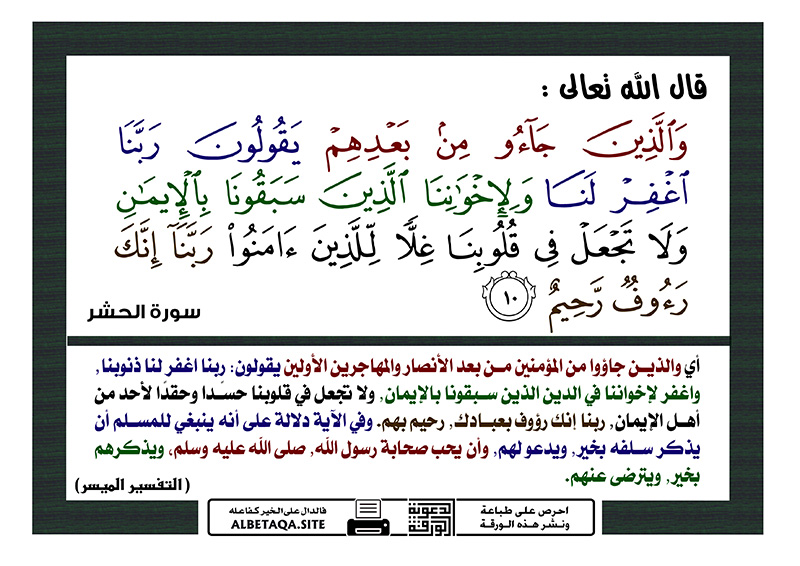 قال الله تعالى :
وَٱلَّذِينَ جَآءُو مِنۢ بَعْدِهِمْ يَقُولُونَ رَبَّنَا
ٱغْفِرْ لَنَا وَلِإِخْوَٰنِنَا ٱلَّذِينَ سَبَقُونَا بِٱلْإِيمَٰنِ
وَلَا تَجْعَلْ فِى قُلُوبِنَا غِلًّا لِّلَّذِينَ ءَامَنُوا۟ رَبَّنَآ إِنَّكَ
رَءُوفٌ رَّحِيمٌ ١٠
سورة الحشر
أي والذيـن جاؤوا من المؤمنين مـن بعد الأنصار والمهاجرين الأولين يقولون: ربنا اغفر لنا ذنوبنا,
واغفر لإخواننا في الدين الذين سـبقونا بالإيمان, ولا تجعل في قلوبنا حسـدًا وحقدًا لأحد من
أهـل الإيمان, ربنا إنك رؤوف بعبـادك, رحيم بهم. وفي الآية دلالة على أنه ينبغي للمسـلم أن
يذكر سـلفه بخير, ويدعو لهم, وأن يحب صحابة رسول الله, صلى الله عليه وسلم, ويذكرهم
بخير, ويترضى عنهم.
(التفسير الميسر)
احرص على طباعة
ونشر هذه الورقة
الدعوية
الورقة
فالدال على الخير كفاعله
ALBETAQA.SITE